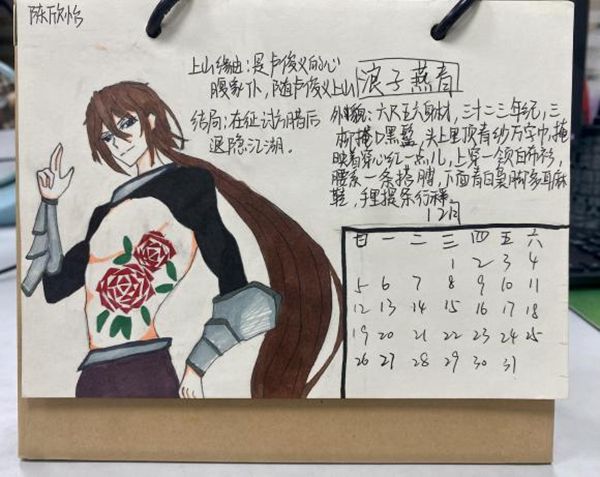 陈欣怡
上山缘由:是卢俊义的心
腹家仆,随卢俊义上山
结局:在征讨方腊后
退隐江湖.
浪子燕青
外貌:六尺五六身材,三十二三年纪,三
掩口黑髯,头上里顶着纱万字巾,掩
映着穿心红一点儿,上穿一领白布衫,
腰系一条搭膊,下面着白裹脚多耳麻
鞋,手里提条行棒
12月
日 一 二 三 四 五 六
1 2 3 4
5 6 7 8 9 10 11
12 13 14 15 16 17 18
19 20 21 22 23 24 25
26 27 28 29 30 31